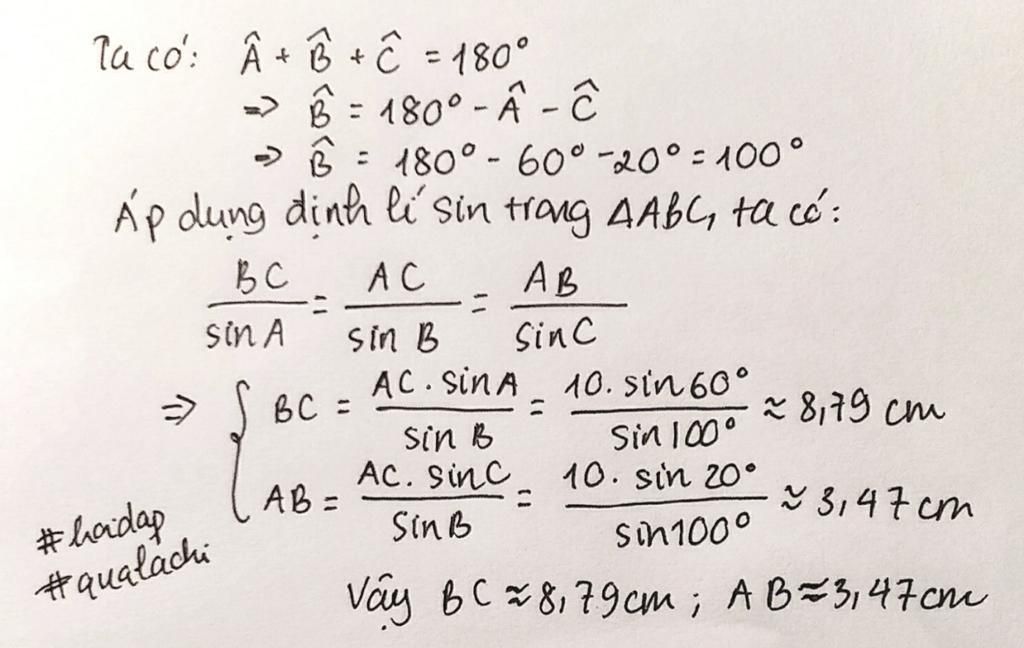 Ta có: Â + B̂ + Ĉ = 180°
⇒ B̂ = 180° - Â - Ĉ
⇒ B̂ = 180° - 60° - 20° = 100°
Áp dụng định lí sin trong ΔABC, ta có:
BC/sin A = AC/sin B = AB/sin C
⇒ { BC = AC . sin A/sin B = 10 . sin 60°/sin 100° ≈ 8,79 cm
AB = AC . sin C/sin B = 10 . sin 20°/sin 100° ≈ 3,47 cm
#hoidap
#qualachi
Vậy BC ≈ 8,79 cm ; AB ≈ 3,47 cm